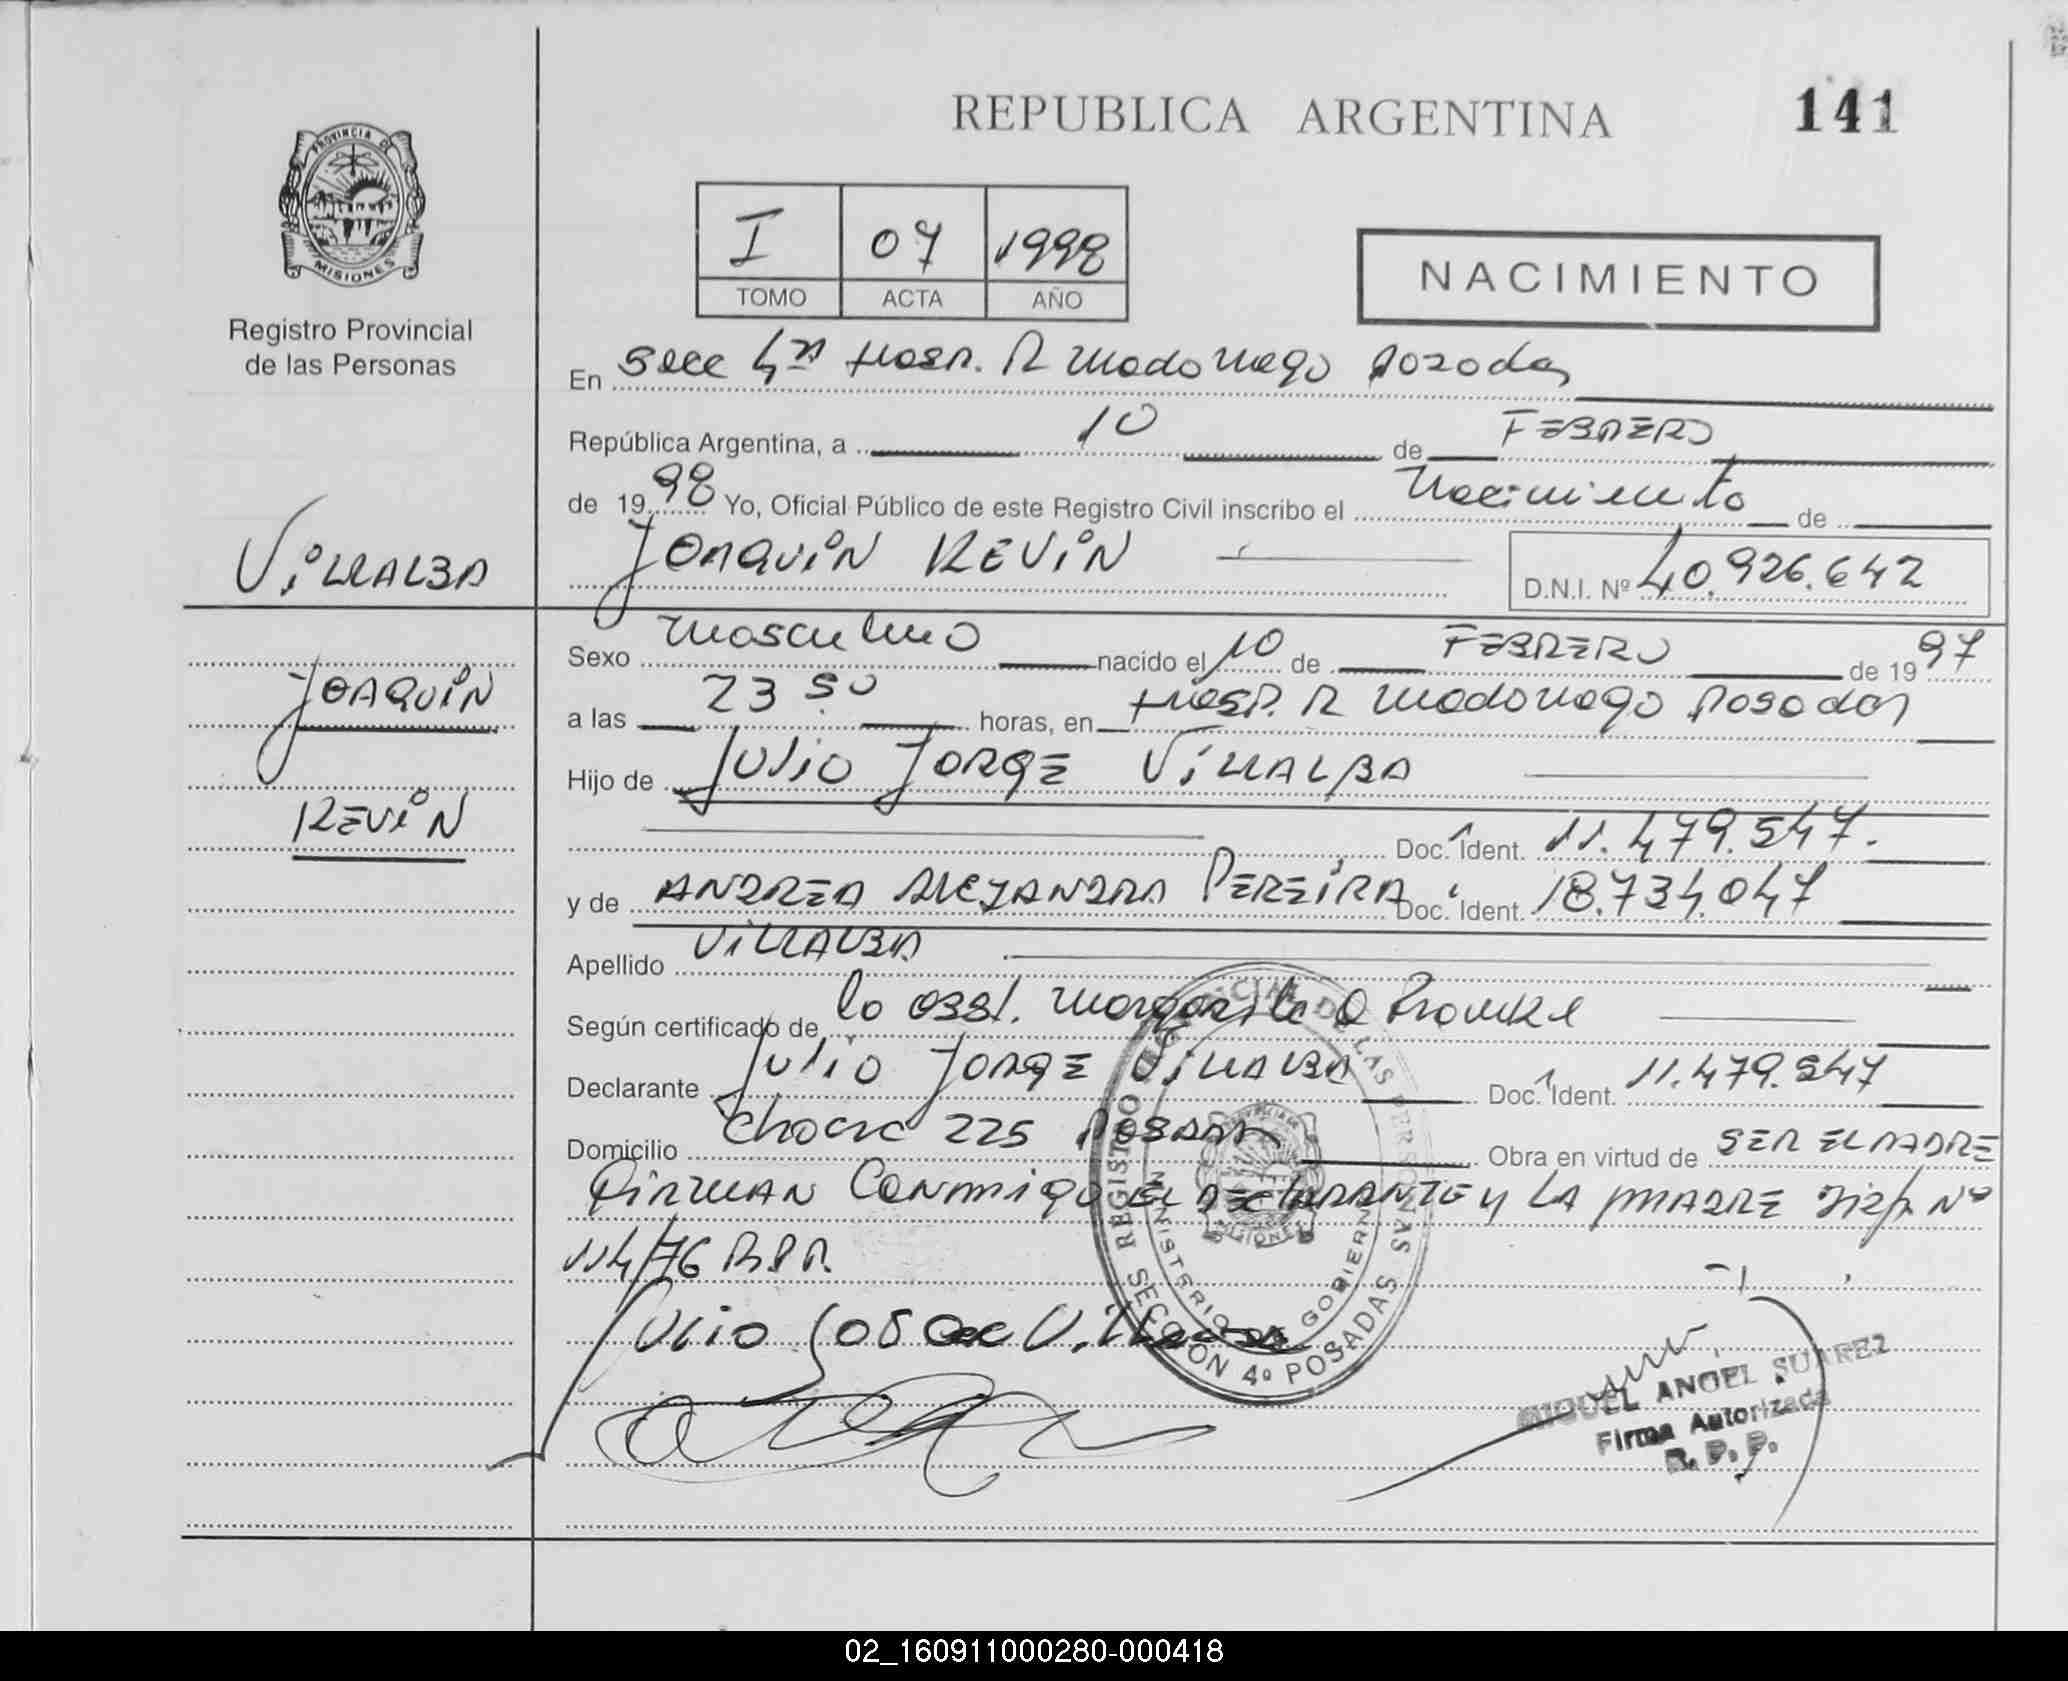 REPUBLICA ARGENTINA
141
PROVINCIA DE MISIONES
Registro Provincial
de las Personas
I 07 1998
TOMO ACTA AÑO
NACIMIENTO
En Secc 4ta Hosp. R Madariaga Posadas
República Argentina, a 10 de FEBRERO
de 1998 Yo, Oficial Público de este Registro Civil inscribo el Nacimiento de
JOAQUIN KEVIN D.N.I. Nº 40.926.642
VILLALBA
JOAQUIN
KEVIN
Sexo Masculino nacido el 10 de FEBRERO de 1997
a las 23 50 horas, en Hosp. R Madariaga Posadas
Hijo de JULIO JORGE VILLALBA
Doc. Ident. 11.479.547.
y de ANDREA ALEJANDRA PEREIRA Doc. Ident. 18.734.047
Apellido VILLALBA
Según certificado de la obst. Margarita
Declarante JULIO JORGE VILLALBA Doc. Ident. 11.479.547
Domicilio 225 POSADAS Obra en virtud de SER EL PADRE
FIRMAN CONMIGO EL DECLARANTE Y LA MADRE Disp. Nº
114/76 R.P.P.
Julio Jorge Villalba
REGISTRO PROVINCIAL DE LAS PERSONAS
MINISTERIO DE GOBIERNO
SECCION 4º POSADAS
MIGUEL ANGEL SUAREZ
Firma Autorizada
R. P. P.
02_160911000280-000418